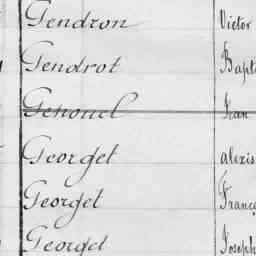 Gendron Victor
Gendrot Bapt
Genouel Jean
Georget alexis
Georget Franç
Georget Joseph